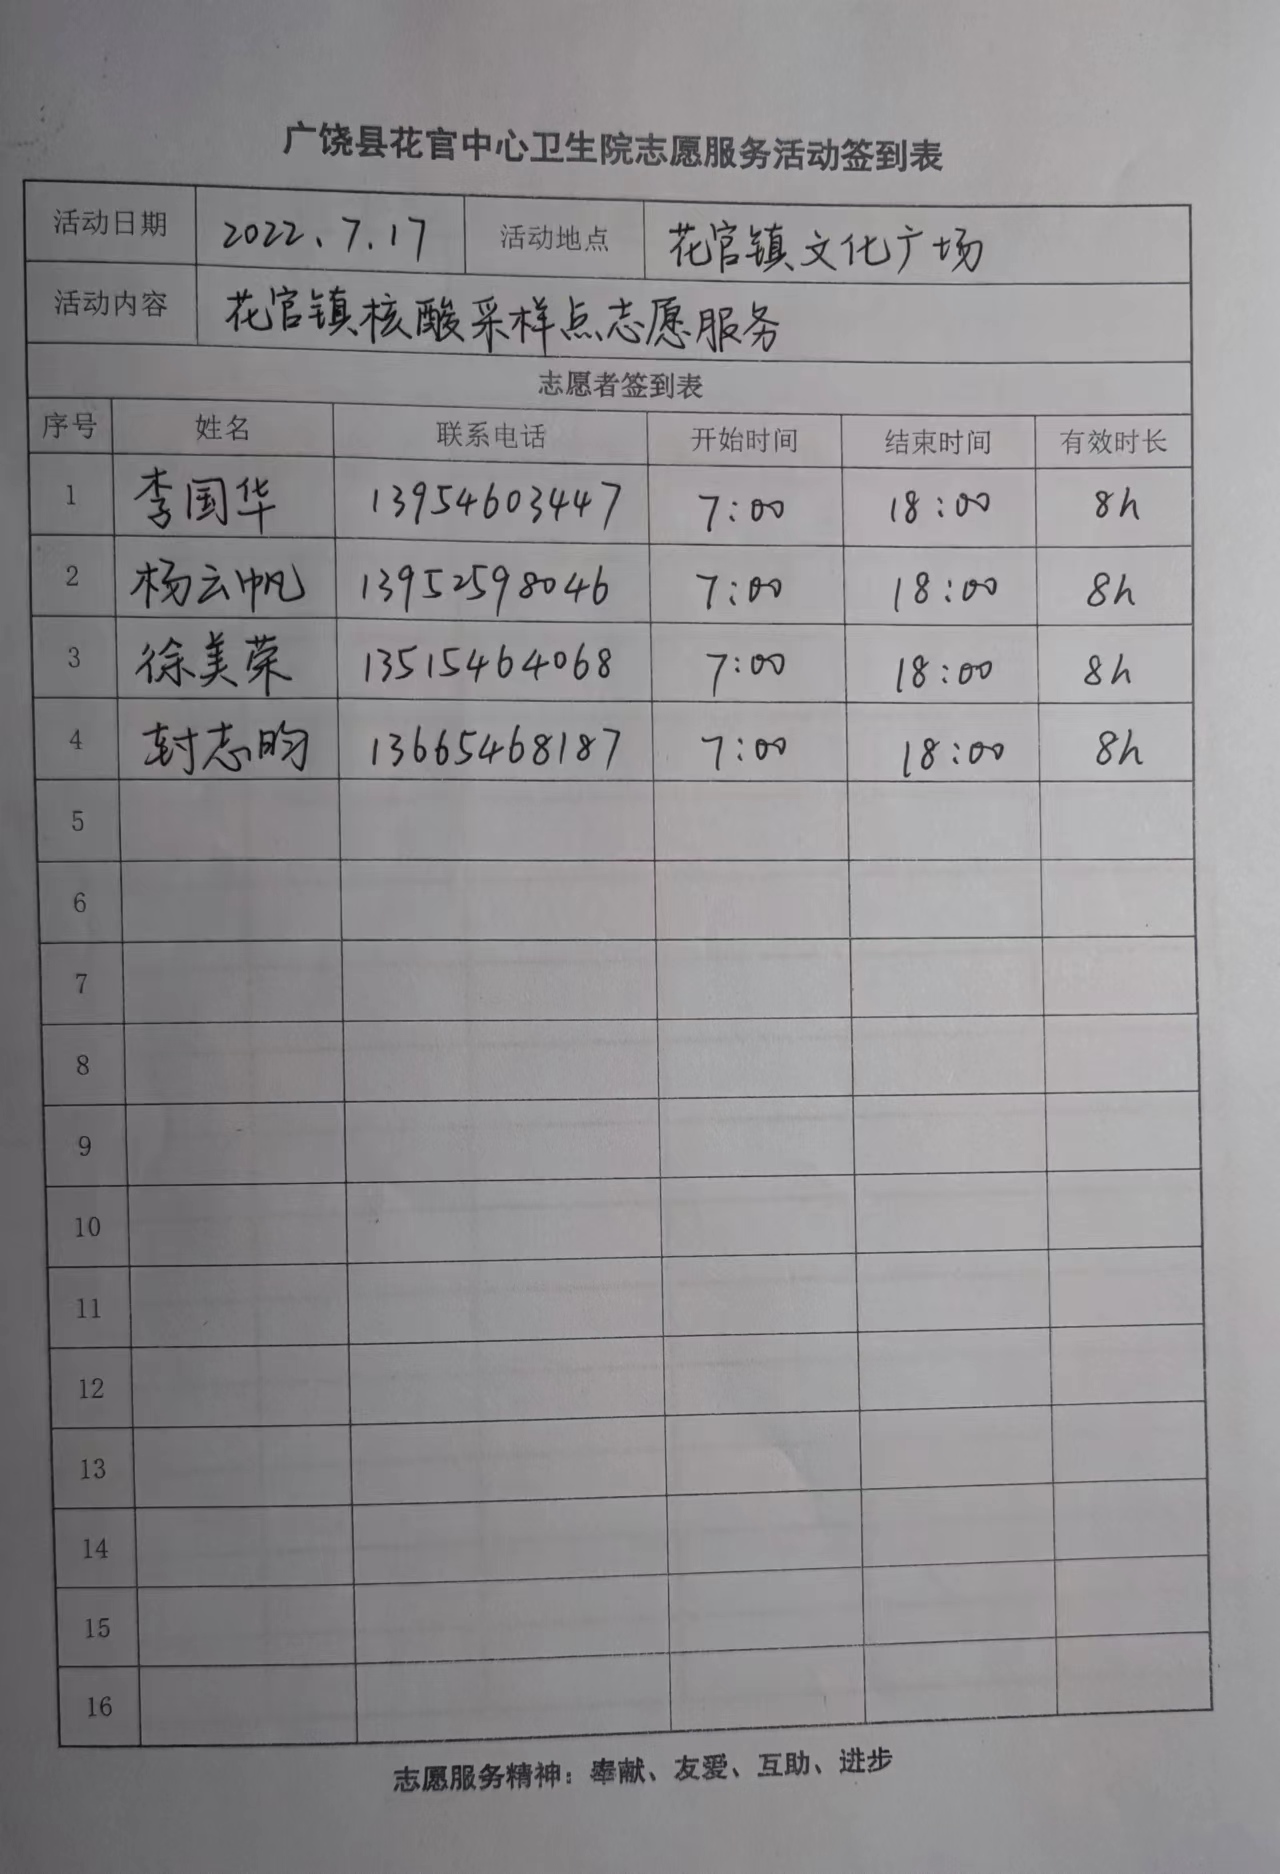 广饶县花官中心卫生院志愿服务活动签到表
活动日期 2022、7.17 活动地点 花官镇文化广场
活动内容 花官镇核酸采样点志愿服务
志愿者签到表
序号 姓名 联系电话 开始时间 结束时间 有效时长
1 李国华 13954603447 7:00 18:00 8h
2 杨云帆 13952598046 7:00 18:00 8h
3 徐美荣 13515464068 7:00 18:00 8h
4 封志昀 13665468187 7:00 18:00 8h
5
6
7
8
9
10
11
12
13
14
15
16
志愿服务精神：奉献、友爱、互助、进步